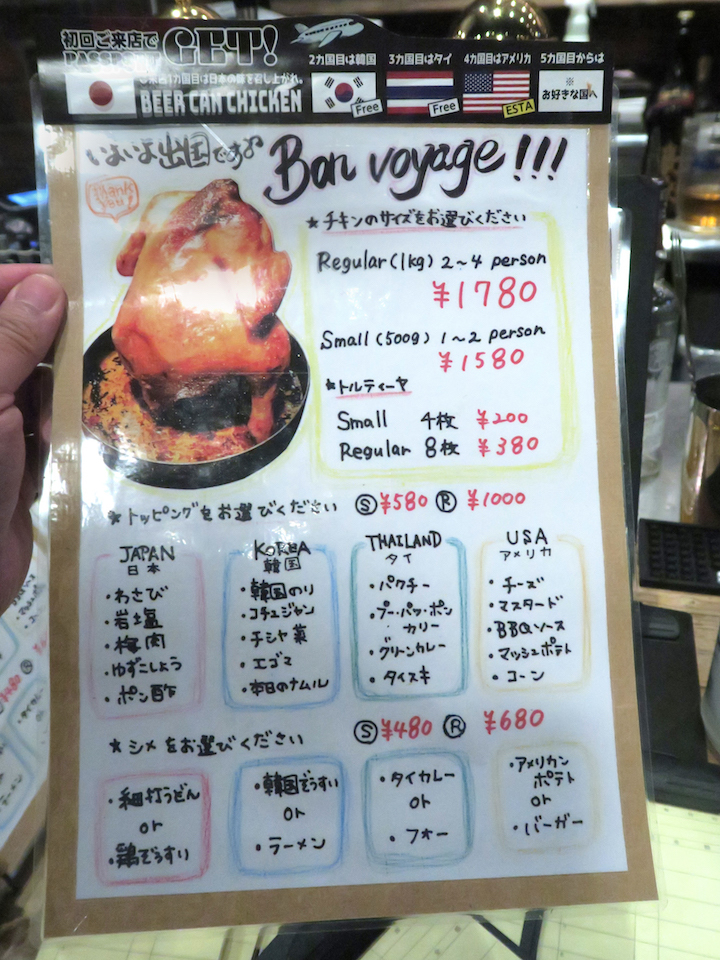 初回ご来店で
PASSPORT GET!
ご来店1カ国目は日本の味を召し上がれ。
BEER CAN CHICKEN
2カ国目は韓国
Free
3カ国目はタイ
Free
4カ国目はアメリカ
ESTA
5カ国目からは
※
お好きな国へ
いよいよ出国です♪
Bon voyage!!!
Thank you!
★チキンのサイズをお選びください
Regular(1kg) 2~4 person
¥1780
Small(500g) 1~2 person
¥1580
★トルティーヤ
Small 4枚 ¥200
Regular 8枚 ¥380
★トッピングをお選びください Ⓢ¥580 Ⓡ¥1000
JAPAN
日本
・わさび
・岩塩
・梅肉
・ゆずこしょう
・ポン酢
KOREA
韓国
・韓国のり
・コチュジャン
・チシャ菜
・エゴマ
・本日のナムル
THAILAND
タイ
・パクチー
・プー・パッ・ポン・
カリー
・グリーンカレー
・タイスキ
USA
アメリカ
・チーズ
・マスタード
・BBQソース
・マッシュポテト
・コーン
★シメをお選びください Ⓢ¥480 Ⓡ¥680
・細打うどん
or
・鶏ぞうすい
・韓国ぞうすい
or
・ラーメン
・タイカレー
or
・フォー
・アメリカン
ポテト
or
・バーガー